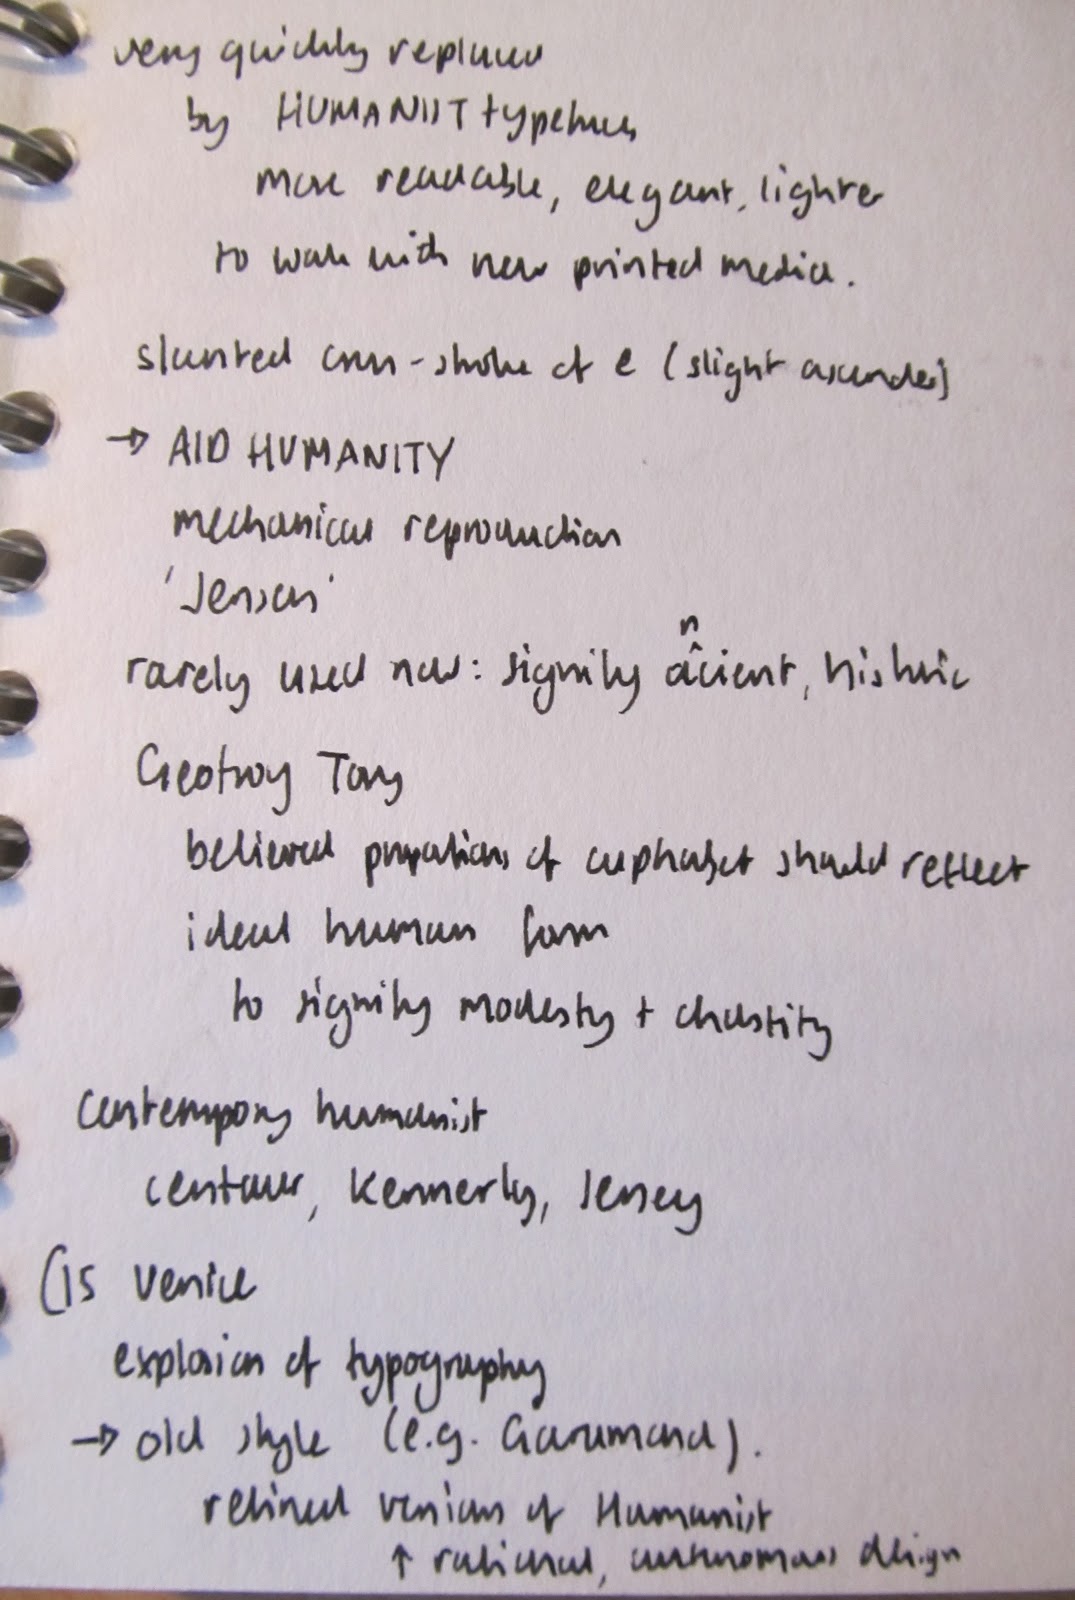 very quickly replaced
by HUMANIST typefaces
more readable, elegant, lighter
to work with new printed media.
slanted cross-stroke of e (slight ascender)
→ AID HUMANITY
mechanical reproduction
'Jenson'
rarely used now: signify ancient, historic
Geofroy Tory
believed proportions of alphabet should reflect
ideal human form
to signify modesty + chastity
contempory humanist
centaur, Kennerly, Jensey
C15 Venice
explosion of typography
→ old style (e.g. Garamond).
refined version of Humanist
↑ rational, autonomous design